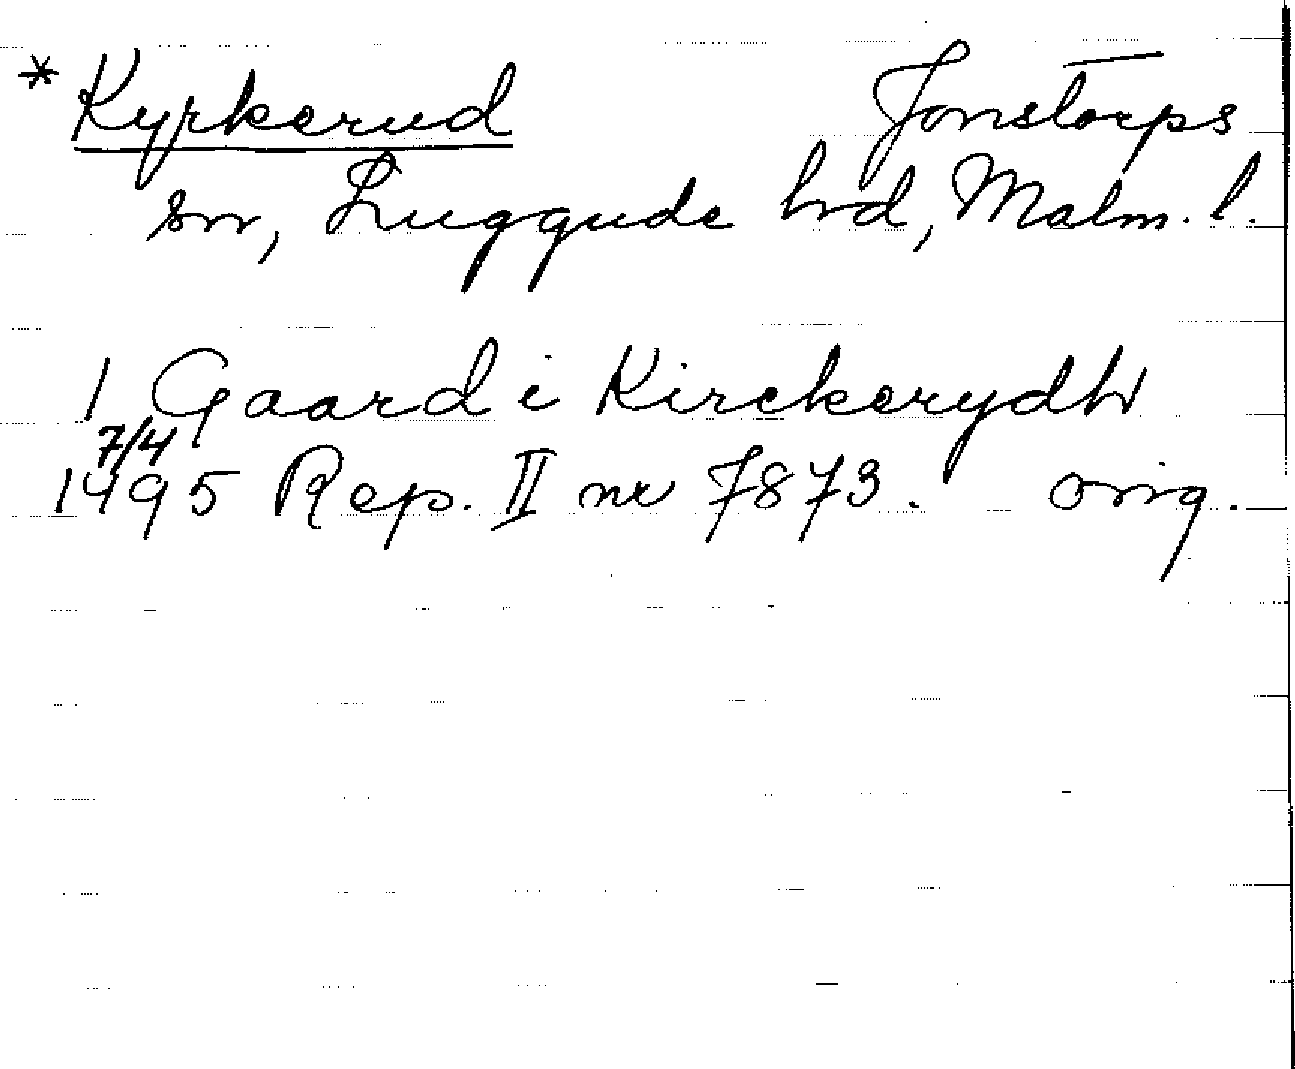 * Kyrkerud Jonstorps
sn, Luggude hrd, Malm. l.
1 Gaard i Kirckerydh
7/4
1495 Rep. II nr 7873. orig.